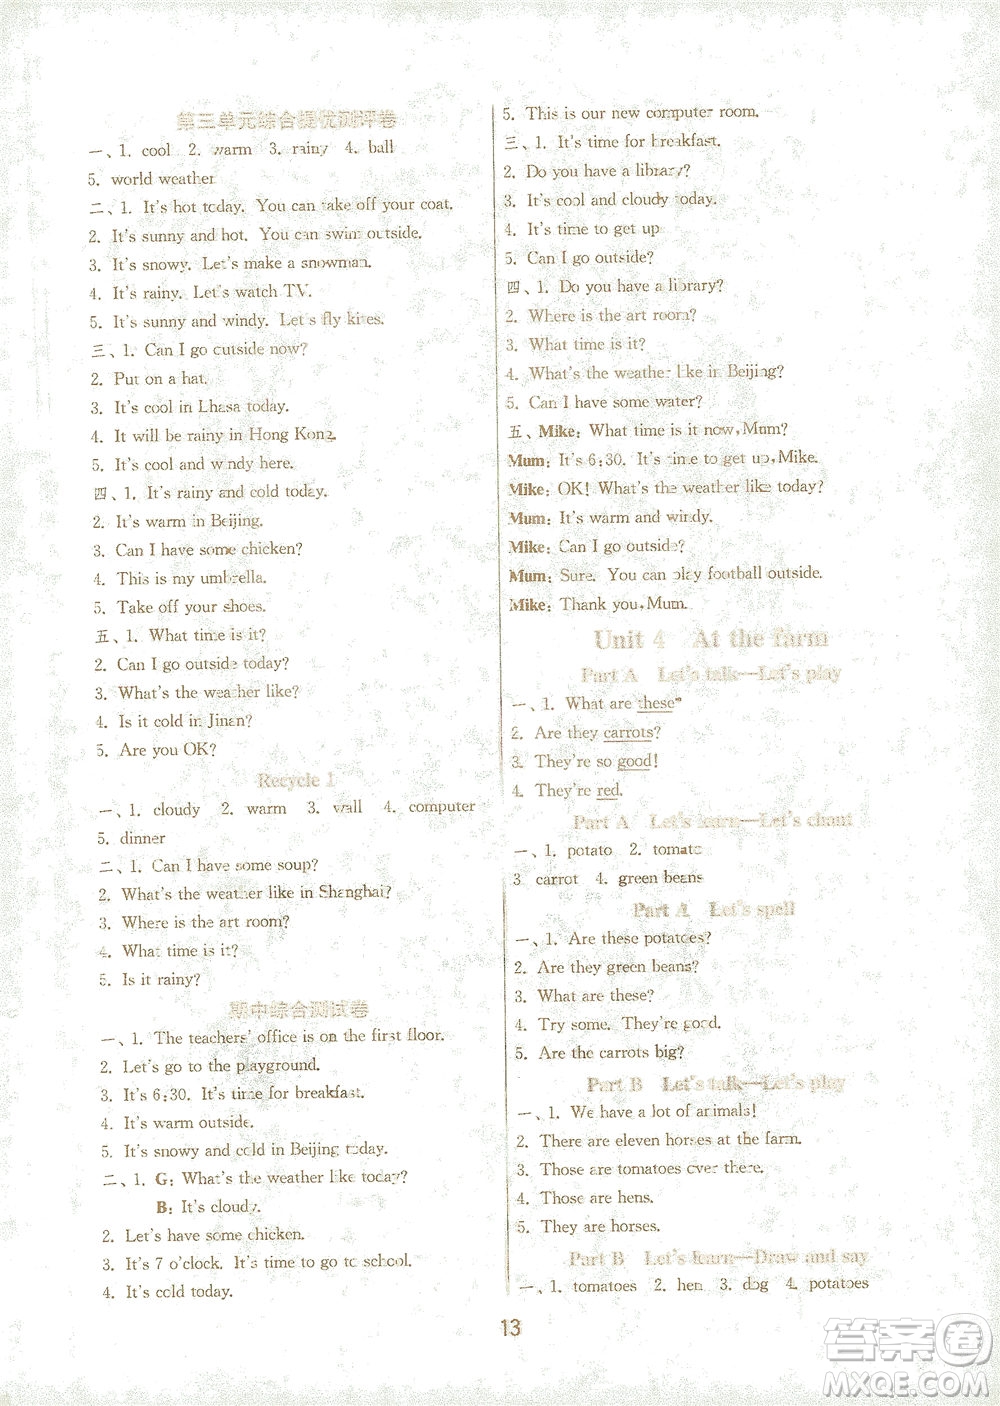 第三单元综合提优测评卷
一、1. cool 2. warm 3. rainy 4. ball
5. world weather
二、1. It's hot today. You can take off your coat.
2. It's sunny and hot. You can swim outside.
3. It's snowy. Let's make a snowman.
4. It's rainy. Let's watch TV.
5. It's sunny and windy. Let's fly kites.
三、1. Can I go outside now?
2. Put on a hat.
3. It's cool in Lhasa today.
4. It will be rainy in Hong Kong.
5. It's cool and windy here.
四、1. It's rainy and cold today.
2. It's warm in Beijing.
3. Can I have some chicken?
4. This is my umbrella.
5. Take off your shoes.
五、1. What time is it?
2. Can I go outside today?
3. What's the weather like?
4. Is it cold in Jinan?
5. Are you OK?
Recycle 1
一、1. cloudy 2. warm 3. wall 4. computer
5. dinner
二、1. Can I have some soup?
2. What's the weather like in Shanghai?
3. Where is the art room?
4. What time is it?
5. Is it rainy?
期中综合测试卷
一、1. The teachers' office is on the first floor.
2. Let's go to the playground.
3. It's 6:30. It's time for breakfast.
4. It's warm outside.
5. It's snowy and cold in Beijing today.
二、1. G: What's the weather like today?
B: It's cloudy.
2. Let's have some chicken.
3. It's 7 o'clock. It's time to go to school.
4. It's cold today.
5. This is our new computer room.
三、1. It's time for breakfast.
2. Do you have a library?
3. It's cool and cloudy today.
4. It's time to get up
5. Can I go outside?
四、1. Do you have a library?
2. Where is the art room?
3. What time is it?
4. What's the weather like in Beijing?
5. Can I have some water?
五、Mike: What time is it now, Mum?
Mum: It's 6:30. It's time to get up, Mike.
Mike: OK! What's the weather like today?
Mum: It's warm and windy.
Mike: Can I go outside?
Mum: Sure. You can play football outside.
Mike: Thank you, Mum.
Unit 4 At the farm
Part A Let's talk—Let's play
一、1. What are these?
2. Are they carrots?
3. They're so good!
4. They're red.
Part A Let's learn—Let's chant
一、1. potato 2. tomato
3. carrot 4. green beans
Part A Let's spell
一、1. Are these potatoes?
2. Are they green beans?
3. What are these?
4. Try some. They're good.
5. Are the carrots big?
Part B Let's talk—Let's play
一、1. We have a lot of animals!
2. There are eleven horses at the farm.
3. Those are tomatoes over there.
4. Those are hens.
5. They are horses.
Part B Let's learn—Draw and say
一、1. tomatoes 2. hen 3. dog 4. potatoes
13
答案圈
MXQE.COM